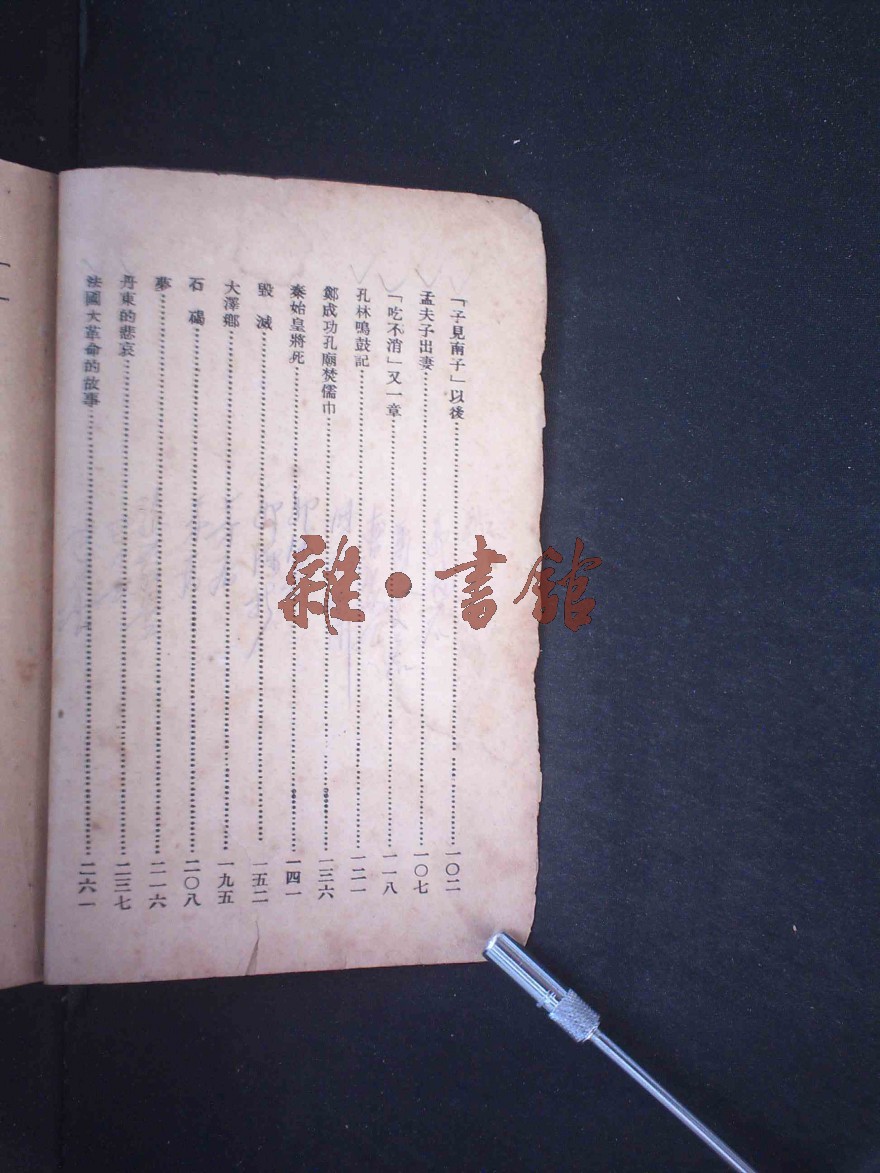 「子見南子」以後……一〇二
孟夫子出妻……一〇七
「吃不消」又一章……一一八
孔林鳴鼓記……一二一
鄭成功孔廟焚儒巾……一三六
秦始皇將死……一四一
毀滅……一五二
大澤鄉……一九五
石碣……二〇八
夢……二一六
丹東的悲哀……二三七
法國大革命的故事……二六一
雜·書館